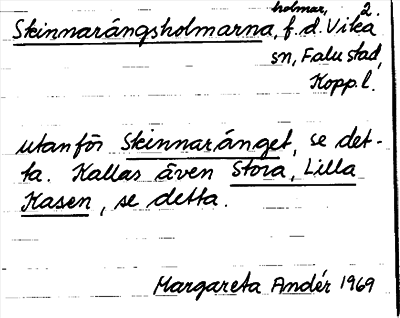 holmar, 2.
Skinnarängsholmarna, f.d. Vika
sn, Falu stad,
Kopp.l.
utanför Skinnaränget, se det-
ta. Kallas även Stora, Lilla
Kasen, se detta.
Margareta Andér 1969